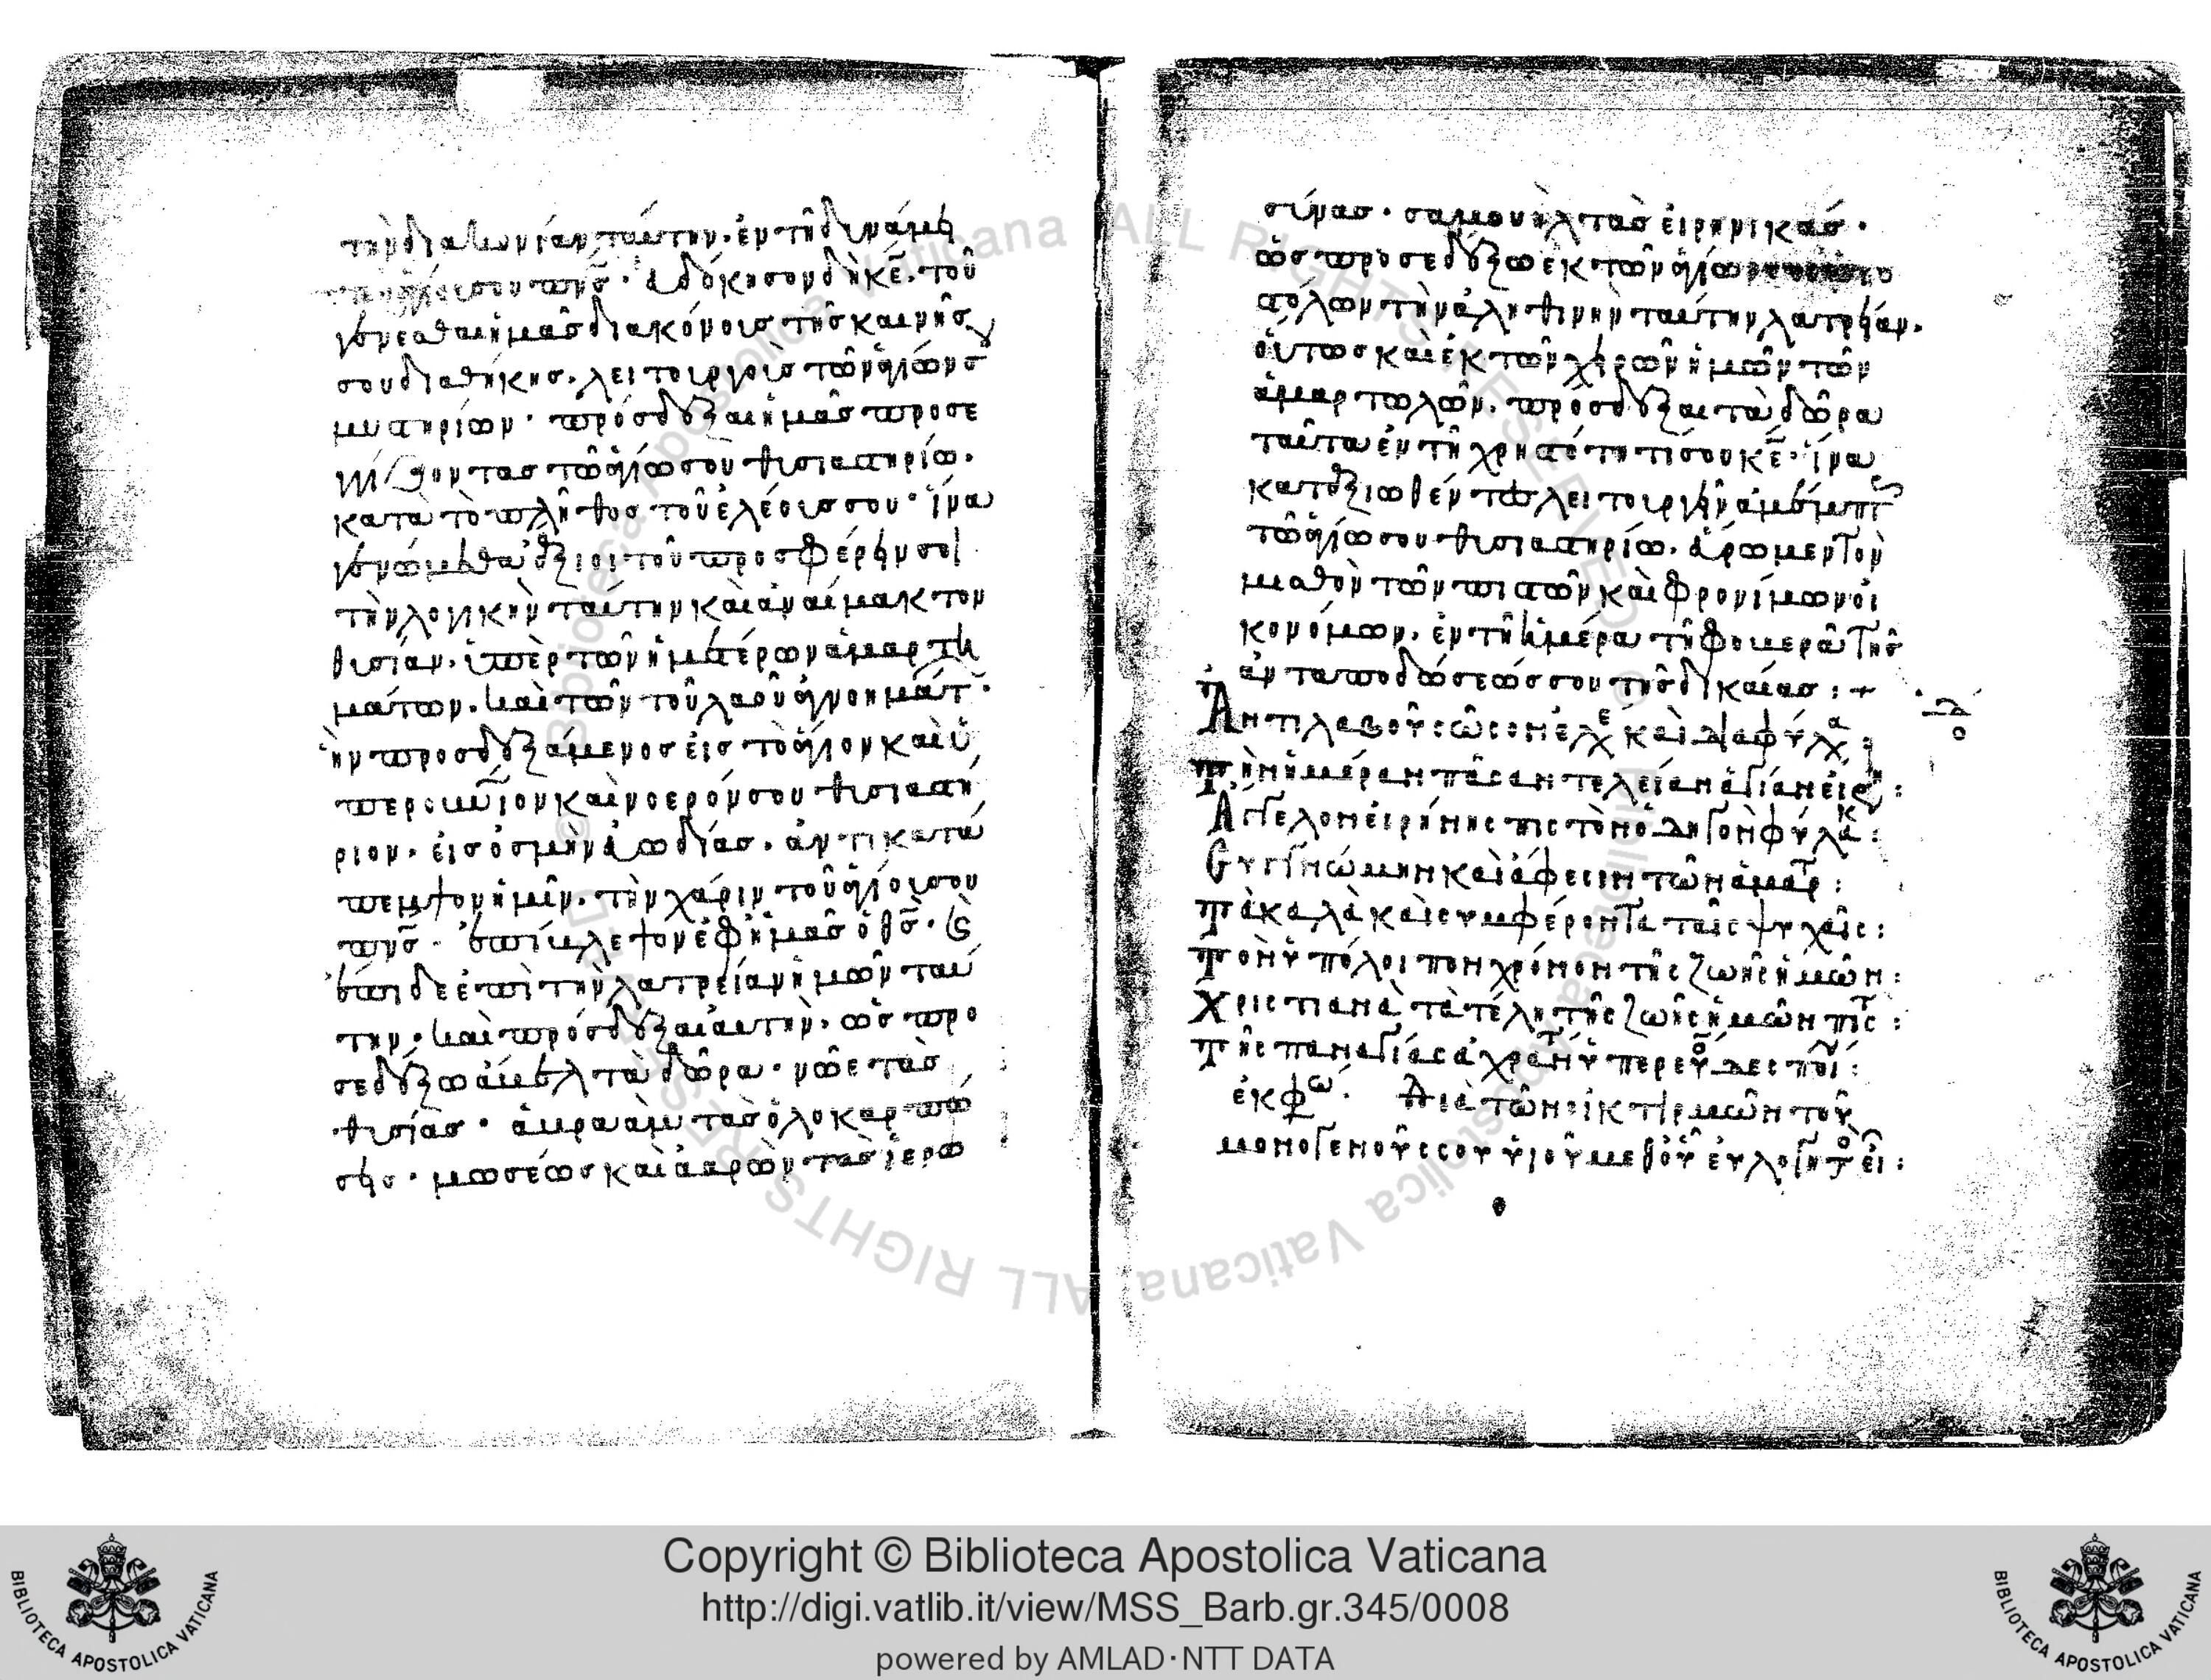 τὴν διακονίαν ταύτην· ἐν τῇ δυνάμει
τοῦ ἁγίου σου πν̅ς· εὐδόκησον δὴ κε̅· τοῦ
γενέσθαι ἡμᾶς διακόνους τῆς καινῆς
σου διαθήκης· λειτουργοὺς τῶν ἁγίων σου
μυστηρίων· πρόσδεξαι ἡμᾶς προσε
γγίζοντας τῶ ἁγίω σου θυσιαστηρίω·
κατὰ τὸ πλῆθος τοῦ ἐλέους σου· ἵνα
γενώμεθα ἄξιοι τοῦ προσφέρειν σοι
τὴν λογικὴν ταύτην καὶ ἀναίμακτον
θυσίαν· ὑπὲρ τῶν ἡμετέρων ἁμαρτη
μάτων· καὶ τῶν τοῦ λαοῦ ἀγνοημάτ·
ἣν προσδεξάμενος εἰς τὸ ἅγιον καὶ ὑ
περουνιον καὶ νοερόν σου θυσιαστή
ριον· εἰς ὀσμὴν εὐωδίας· ἀντικατά
πεμψον ἡμῖν· τὴν χάριν τοῦ ἁγίου σου
πν̅ς· ἐπίβλεψον ἐφ ἡμᾶς ὁ θς̅· καὶ
ἔπιδε ἐπὶ τὴν λατρείαν ἡμῶν ταύ
την· καὶ πρόσδεξαι αὐτὴν· ὡς προ
σεδέξω ἄβελ τὰ δῶρα· νῶε τὰς
θυσίας· ἀβραὰμ τὰς ὁλοκαρπώ
σεις· μωσέως καὶ ἀαρὼν τὰς ἱερω
σύνας· σαμουὴλ τὰς εἰρηνικάς·
ὡς προσεδέξω ἐκ τῶν ἁγίων
στόλων τὴν ἀληθινὴν ταύτην λατρείαν·
οὕτως καὶ ἐκ τῶν χειρῶν ἡμῶν τῶν
ἁμαρτωλῶν· πρόσδεξαι τὰ δῶρα
ταῦτα ἐν τῇ χρηστότητί σου κε̅· ἵνα
καταξιωθέντες λειτουργεῖν ἀμέμπτ
τῶ ἁγίω σου θυσιαστηρίω· εὕρωμεν τὸν
μισθὸν τῶν πιστῶν καὶ φρονίμων οἰ
κονόμων· ἐν τῇ ἡμέρα τῇ φοβερᾶ τῆς
ἀνταποδόσεώς σου τῆς δικαίας : +
Ἀντιλαβοῦ σῶσον ἐλε καὶ διαφύλα :
Τὴν ἡμέραν πᾶσαν τελείαν ἁγίαν εἰρη :
Ἄγγελον εἰρήνης πιστὸν ὁδηγὸν φύλακ :
Συγγνώμην καὶ ἄφεσιν τῶν ἁμαρτ :
Τὰ καλὰ καὶ συμφέροντα ταῖς ψυχαῖς :
Τὸν ὑπόλοιπον χρόνον τῆς ζωῆς ἡμῶν :
Χριστιανὰ τὰ τέλη τῆς ζωῆς ἡμῶν
Τῆς παναγίας ἀχραντ ὑπερευ
ἐκφω· Διὰ τῶν οἰκτιρμῶν τοῦ
μονογενοῦς σου υἱοῦ μεθ οὗ εὐλογητὸς εἶ :
Copyright © Biblioteca Apostolica Vaticana
http://digi.vatlib.it/view/MSS_Barb.gr.345/0008
powered by AMLAD·NTT DATA
BIBLIOTECA APOSTOLICA VATICANA
BIBLIOTECA APOSTOLICA VATICANA